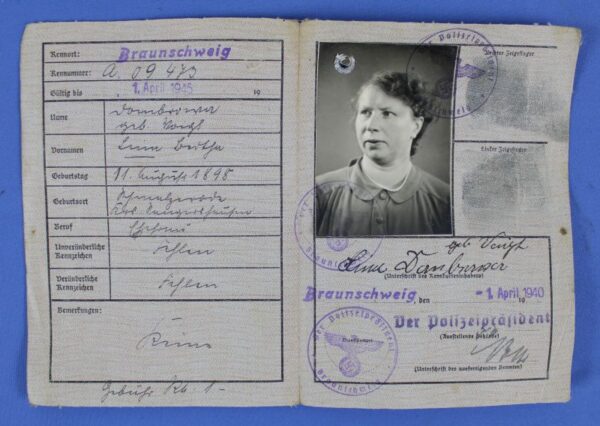 Kennort: Braunschweig
Kennummer: A 09473
Gültig bis 1. April 1945 19
Name Dombrowa
geb. Voigt
Vornamen Lina Bertha
Geburtstag 11. August 1898
Geburtsort
Krs. Sangerhausen
Beruf Ehefrau
Unveränderliche
Kennzeichen Fehlen
Veränderliche
Kennzeichen Fehlen
Bemerkungen:
Keine
Gebühr Rb. 1-
Der Polizeipräsident
Braunschweig
Rechter Zeigefinger
Linker Zeigefinger
geb. Voigt
Lina
(Unterschrift des Kennkarteninhabers)
Braunschweig, den - 1. April 1940 19
Der Polizeipräsident
(Ausstellende Behörde)
Der Polizeipräsident
Dienststempel
Braunschweig
(Unterschrift des ausfertigenden Beamten)